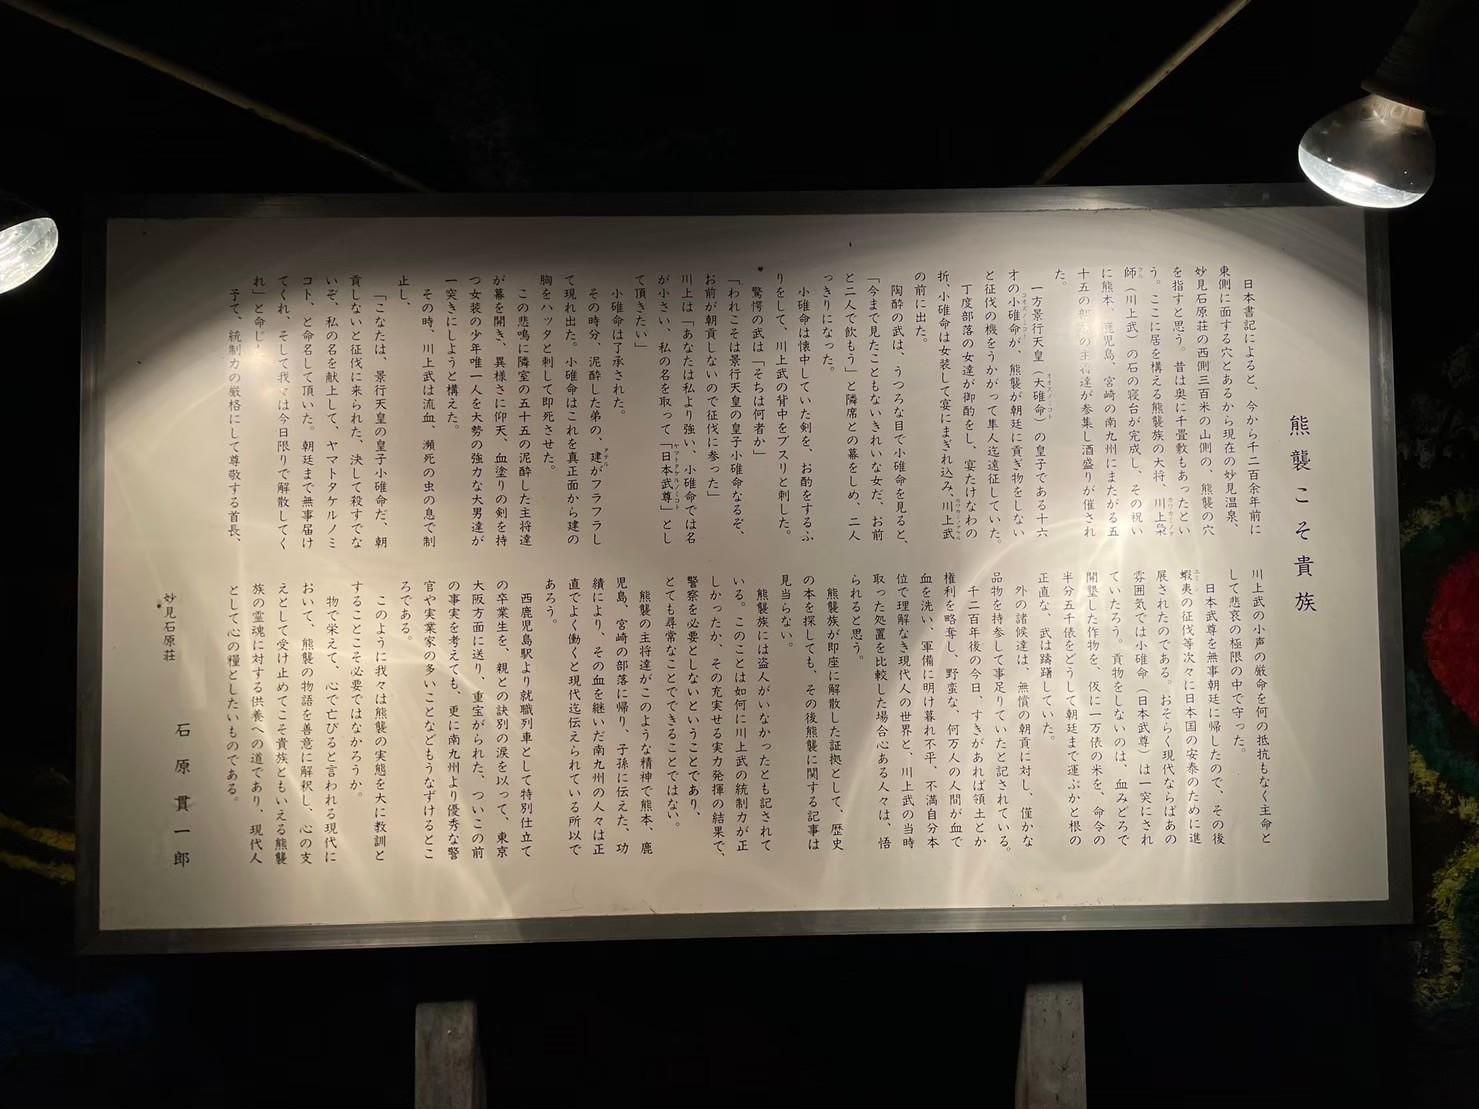 熊襲こそ貴族
日本書記によると、今から千二百余年前に
東側に面する穴とあるから現在の妙見温泉、
妙見石原荘の西側三百米の山側の、熊襲の穴
を指すと思う。昔は奥に千畳敷もあったとい
う。ここに居を構える熊襲族の大将、川上梟
師（川上武）の石の寝台が完成し、その祝い
に熊本、鹿児島、宮崎の南九州にまたがる五
十五の部落の主将達が参集し酒盛りが催され
た。
一方景行天皇（大碓命）の皇子である十六
才の小碓命が、熊襲が朝廷に貢ぎ物をしない
と征伐の機をうかがって隼人迄遠征していた。
丁度部落の女達が御酌をし、宴たけなわの
折、小碓命は女装して宴にまぎれ込み、川上武
の前に出た。
陶酔の武は、うつろな目で小碓命を見ると、
「今まで見たこともないきれいな女だ、お前
と二人で飲もう」と隣席との幕をしめ、二人
っきりになった。
小碓命は懐中していた剣を、お酌をするふ
りをして、川上武の背中をブスリと刺した。
驚愕の武は「そちは何者か」
「われこそは景行天皇の皇子小碓命なるぞ、
お前が朝貢しないので征伐に参った」
川上は「あなたは私より強い、小碓命では名
が小さい、私の名を取って「日本武尊」とし
て頂きたい」
小碓命は了承された。
その時分、泥酔した弟の、建がフラフラし
て現れ出た。小碓命はこれを真正面から建の
胸をハッタと刺して即死させた。
この悲鳴に隣室の五十五の泥酔した主将達
が幕を開き、異様さに仰天、血塗りの剣を持
つ女装の少年唯一人を大勢の強力な大男達が
一突きにしようと構えた。
その時、川上武は流血、瀕死の虫の息で制
止し、
「こなたは、景行天皇の皇子小碓命だ、朝
貢しないと征伐に来られた、決して殺すでな
いぞ、私の名を献上して、ヤマトタケルノミ
コト、と命名して頂いた。朝廷まで無事届け
てくれ、そして我々は今日限りで解散してく
れ」と命じた。
さて、統制力の厳格にして尊敬する首長、
川上武の小声の厳命を何の抵抗もなく主命と
して悲哀の極限の中で守った。
日本武尊を無事朝廷に帰したので、その後
蝦夷の征伐等次々に日本国の安泰のために進
展されたのである。おそらく現代ならばあの
雰囲気では小碓命（日本武尊）は一突にされ
ていたろう。貢物をしないのは、血みどろで
開墾した作物を、仮に一万俵の米を、命令の
半分五千俵をどうして朝廷まで運ぶかと根の
正直な、武は躊躇していた。
外の諸候達は、無償の朝貢に対し、僅かな
品物を持参して事足りていたと記されている。
千二百年後の今日、すきがあれば領土とか
権利を略奪し、野蛮な、何万人の人間が血で
血を洗い、軍備に明け暮れ不平、不満自分本
位で理解なき現代人の世界と、川上武の当時
取った処置を比較した場合心ある人々は、悟
られると思う。
熊襲族が即座に解散した証拠として、歴史
の本を探しても、その後熊襲に関する記事は
見当らない。
熊襲族には盗人がいなかったとも記されて
いる。このことは如何に川上武の統制力が正
しかったか、その充実せる実力発揮の結果で、
警察を必要としないということであり、
とても尋常なことでできることではない。
熊襲の主将達がこのような精神で熊本、鹿
児島、宮崎の部落に帰り、子孫に伝えた、功
績により、その血を継いだ南九州の人々は正
直でよく働くと現代迄伝えられている所以で
あろう。
西鹿児島駅より就職列車として特別仕立て
の卒業生を、親との訣別の涙を以って、東京
大阪方面に送り、重宝がられた、ついこの前
の事実を考えても、更に南九州より優秀な警
官や実業家の多いことなどもうなずけるとこ
ろである。
このように我々は熊襲の実態を大に教訓と
することこそ必要ではなかろうか。
物で栄えて、心で亡びると言われる現代に
おいて、熊襲の物語を善意に解釈し、心の支
えとして受け止めてこそ貴族ともいえる熊襲
族の霊魂に対する供養への道であり、現代人
として心の糧としたいものである。
妙見石原荘
石原貫一郎